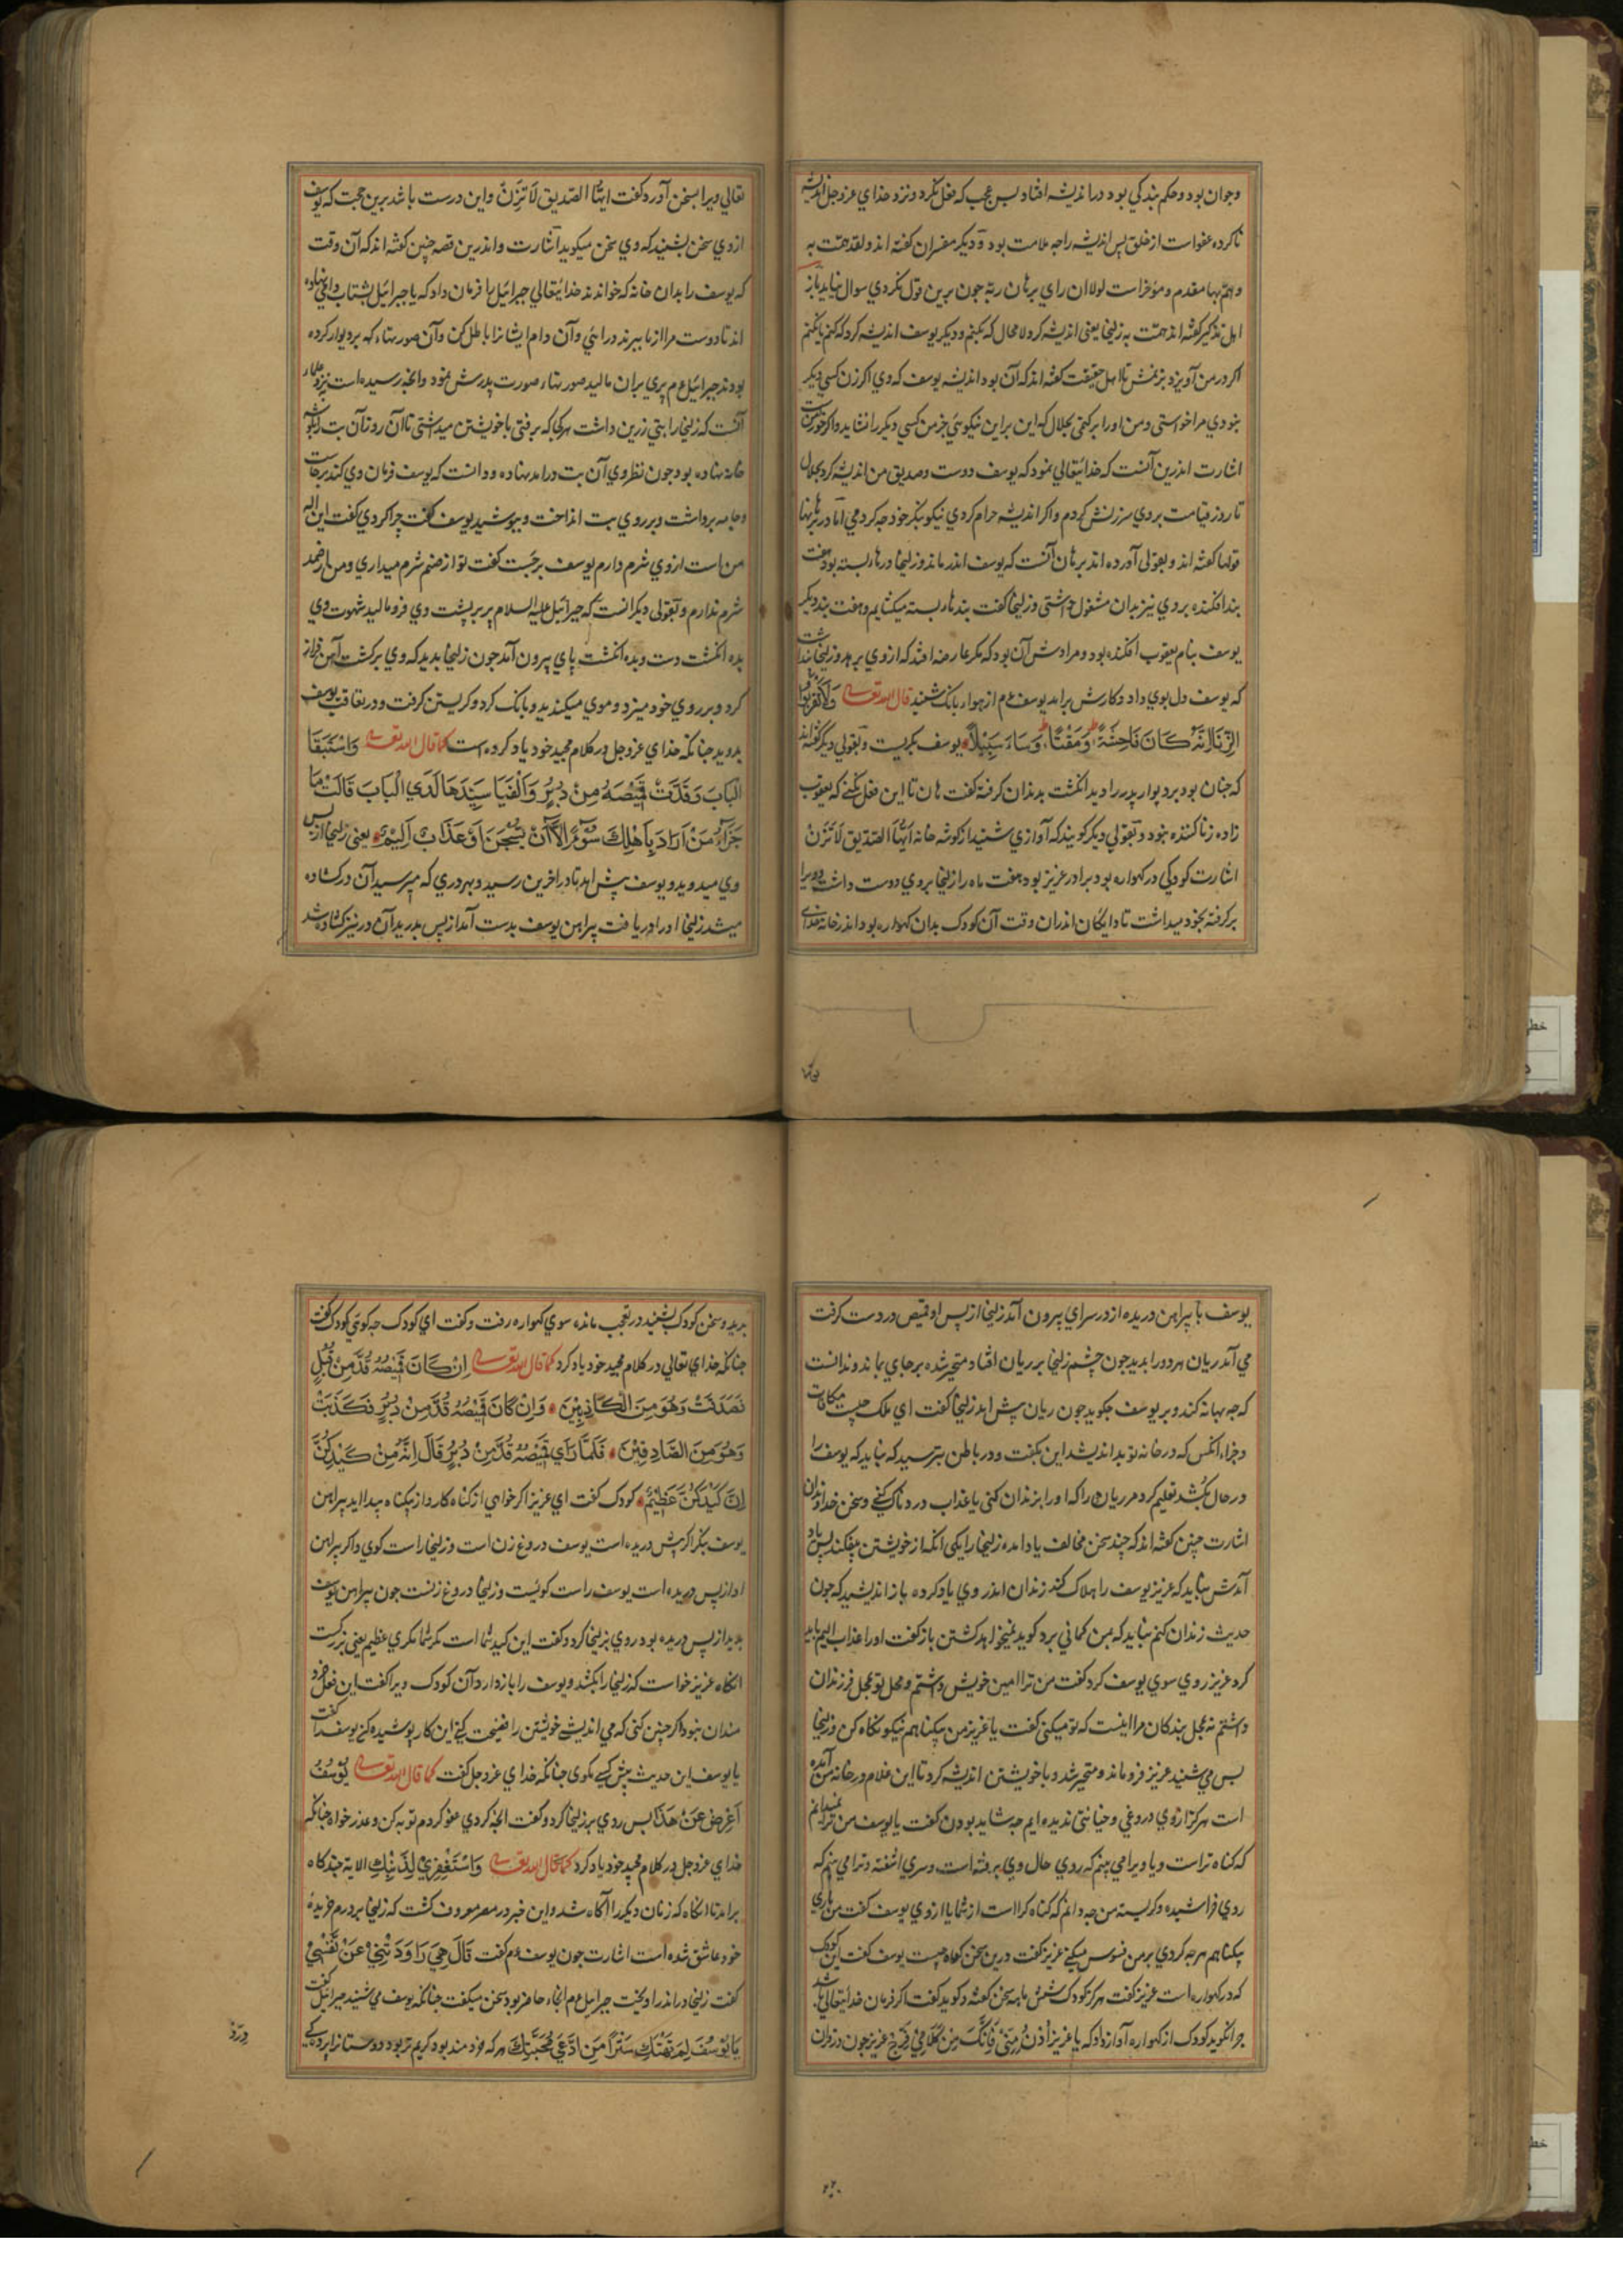 وجوان بود وحكم بندكي بود در انديشه افتاد بس عجب كه فعل نكرد ونزد خداي عزوجل انديشه
ناكرده عفو است از خلق پس انديشه را چه ملامت بود وديكر مفسران كفته اند ولقد همّت به
وهمّ بها مقدم ومؤخر است لولا ان راي برهان ربّه جون برين قول نكردي سوال نيايد باز
اهل تذكير كفته اند همّت به زليخا يعني انديشه كرد لامحال كه بكنم وديكر يوسف انديشه كرد كه كنم يا نكنم
اكر در من آويزد بزنمش تا اهل حقيقت كفته اند كه آن بود انديشه يوسف كه وي اكر زن كسي ديكر
بنودي مرا خواستي ومن اورا بركتمي بحلال كه اين براين نيكويي جز من كسي ديكر را نشايد
اشارت اندرين آنست كه خدايتعالي نمود كه يوسف دوست وصديق من انديشه كرد بحلال
تا روز قيامت بروي سرزنش كردم واكر انديشه حرام كردي نيكو بنكر خود چه كردمي اما در برهانها
قولها كفته اند وبقولي آورده اند برهان آنست كه يوسف اندر ماند وزليخا درها بسته بود هفت
بند افكنده بروي نيز بدان مشغول داشتي وزليخا كفت بندها بسته ميكشايم وهفت بند ديكر
يوسف بنام يعقوب افكنده بود ومرادش آن بود كه مكر عارضه افتد كه از وي برهد وزليخا پنداشت
كه يوسف دل بوي داد وكارش برامد يوسف عم از هوا بانك شنيد قال الله تعالى وَلَا تَقْرَبُوا
الزِّنَا اِنَّهُ كَانَ فَاحِشَةً وَمَقْتًا وَسَاءَ سَبِيْلًا يوسف بكريست وبقولي ديكر كفته اند
كه جنان بود برديوار پدر را ديد انكشت بدندان كرفته كفت هان تا اين فعل نكني كه يعقوب
زاده زنا كننده نبود وبقولي ديكر كويند كه آوازي شنيد از كوشه خانه اَيُّهَا الصّديق لَا تَزْنِ
اشارت كودكي در كهواره بود برادر عزيز بود هفت ماه را زليخا بروي دوست داشت ويرا
بركرفته بخود ميداشت تا دايكان اندران وقت آن كودك بدان كهواره بود اندر خانه خداي
تعالي ويرا بسخن آورد كفت ايها الصّديق لَا تَزْنِ واين درست باشد برين حجت كه يوسف
از وي سخن بشنيد كه وي سخن ميكويد اشارت واندرين قصه چنين كفته اند كه آن وقت
كه يوسف را بدان خانه كه خواندند خدايتعالي جبرائيل را فرمان داد كه يا جبرائيل بشتاب دامي نهاده
اند تا دوست مرا از ما ببرند درائي وآن دام ايشانرا باطل كن وآن صورتهاء كه برديوار كرده
بودند جبرائيل عم پري بران ماليد صورتها، صورت پدرش نمود وانچه رسيده است نزد علماء
آنست كه زليخا را بتي زرين داشت هركجا كه برفتي با خويشتن ميداشتي تا آن روز آن بت در كوشه
خانه نهاده بود جون نظر وي آن بت درامد نهاده ودانست كه يوسف فرمان وي كند برخاست
وجامه برداشت وبر روي بت انداخت وبپوشيد يوسف كفت چرا كردي كفت اين اله
من است ازوي شرم دارم يوسف برجست كفت تو از صنم شرم ميداري ومن از صمد
شرم ندارم وبقولي ديكر انست كه جبرائيل عليه السلام پر بر پشت وي فرو ماليد شهوت وي
بده انكشت دست وبده انكشت پاي بيرون آمد جون زليخا بديد كه وي بركشت آهن فراز
كرد وبر روي خود ميزد وموي ميكنديد وبانك كرد وكريستن كرفت ودر تعاقب يوسف
بدويد جنانكه خداي عزوجل در كلام مجيد خود ياد كرده است كما قال الله تعالى وَاسْتَبَقَا
الْبَابَ وَقَدَّتْ قَمِيْصَهُ مِنْ دُبُرٍ وَاَلْفَيَا سَيِّدَهَا لَدَي الْبَابِ قَالَتْ مَا
جَزَآءُ مَنْ اَرَادَ بِاَهْلِكَ سُوْءً اِلَّا اَنْ يُسْجَنَ اَوْ عَذَابٌ اَلِيْمٌ يعني زليخا از پس
وي ميدويد ويوسف پيش امد تا در آخرين رسيد وبهر دري كه ميرسيد آن در كشاده
ميشد زليخا اورا دريافت پيراهن يوسف بدست آمد از پس بدريد آن در نيز كشاده شد
يوسف با پيراهن دريده از در سراي بيرون آمد زليخا از پس او قميص در دست كرفت
مي آمد ريان هردو را بديد جون چشم زليخا بر ريان افتاد متحير شده برجاي بماند وندانست
كه چه بهانه كند وبر يوسف چكويد جون ريان پيش امد زليخا كفت اي ملك چيست مكافات
وجزاء انكس كه در خانه تو بد انديشد اين بكفت ودر باطن بترسيد كه نبايد كه يوسف را
در حال بكشد تعليم كرد مر ريان را كه اورا بزندان كني يا عذاب دردناك كني وسخن خداوندان
اشارت چنين كفته اند كه چند سخن مخالف ياد امده زليخا را يكي انكه از خويشتن بيفكند پس ياد
آمدش نبايد كه عزيز يوسف را هلاك كند زندان اندر وي ياد كرده باز انديشيد كه جون
حديث زندان كنم نبايد كه بمن كماني برد كويد نميخواهد كشتن باز كفت اورا عذاب اليم بايد
كرد عزيز روي سوي يوسف كرد كفت من ترا امين خويش داشتم ومحل تو محل فرزندان
داشتم نه محل بندكان مرا اينست كه تو ميكني كفت يا عزيز من بيكناهم نيكو نكاه كن وزليخا
بس مي شنيد عزيز فرو ماند ومتحير شد وبا خويشتن انديشه كرد تا اين غلام در خانه من آمده
است هركز ازوي دروغي وخيانتي نديده ايم چه شايد بودن كفت يا يوسف من نميدانم
كه كناه تراست ويا ويرا مي بينم كه روي حال وي برفته است وسري اشفته وترا مي بينم كه
روي خراشيده وكريسته من چه دانم كه كناه كراست از شما يا ازوي يوسف كفت من باري
بيكناهم هرچه كردي بر من فسوس ميكني عزيز كفت درين سخن كواه چيست يوسف كفت اين كودك
كه در كهواره است عزيز كفت هركز كودك شش ماهه سخن كفته وكويد كفت اكر فرمان خدايتعالي باشد
چرا نكويد كودك از كهواره آواز داد كه يا عزيز اُدْنُ مِنِّي فَاِنَّكَ مِنْ كَلَامِي فَرَج عزيز جون دران
بديد وسخن كودك بشنيد در تعجب مانده سوي كهواره رفت وكفت اي كودك چه كويي كودك كفت
چنانكه خداي تعالي در كلام مجيد خود ياد كرد كما قال الله تعالى اِنْ كَانَ قَمِيْصُهُ قُدَّ مِنْ قُبُلٍ
فَصَدَقَتْ وَهُوَ مِنَ الْكَاذِبِيْنَ وَاِنْ كَانَ قَمِيْصُهُ قُدَّ مِنْ دُبُرٍ فَكَذَبَتْ
وَهُوَ مِنَ الصَّادِقِيْنَ فَلَمَّا رَاَي قَمِيْصَهُ قُدَّ مِنْ دُبُرٍ قَالَ اِنَّهُ مِنْ كَيْدِكُنَّ
اِنَّ كَيْدَكُنَّ عَظِيْمٌ كودك كفت اي عزيز اكر خواهي از كناه كار واز بيكناه پيدا ايد پيراهن
يوسف بنكر اكر پيش دريده است يوسف دروغ زن است وزليخا راست كوي واكر پيراهن
او از پس دريده است يوسف راست كوئيست وزليخا دروغ زنست جون پيراهن يوسف
بديد از پس دريده بود روي بزليخا كرد وكفت اين كيد شما است مكر شما مكري عظيم يعني بزركست
انكاه عزيز خواست كه زليخا را بكشد ويوسف را باز دارد آن كودك ويرا كفت اين فعل خرد
مندان نبود اكر چنين كني كه مي انديشي خويشتن را فضيحت كني اين كار پوشيده كن يوسف را كفت
يا يوسف اين حديث پيش كسي مكوي چنانكه خداي عزوجل كفت كما قال الله تعالى يُوْسُفُ
اَعْرِضْ عَنْ هَذَا پس روي بر زليخا كرد وكفت انچه كردي عفو كردم توبه كن وعذر خواه چنانكه
خداي عزوجل در كلام مجيد خود ياد كرد كما قال الله تعالى وَاسْتَغْفِرِيْ لِذَنْبِكِ الاية چندكاه
برامد تا انكاه كه زنان ديكر را آكاه شد واين خبر در مصر معروف كشت كه زليخا بر درم خريده
خود عاشق شده است اشارت جون يوسف عم كفت قَالَ هِيَ رَاوَدَتْنِيْ عَنْ نَفْسِيْ
كفت زليخا در اندر اويخت جبرايل عم انجاء حاضر بود سخن ميكفت چنانكه يوسف مي شنيد جبرائيل كفت
يَا يُوْسُفَ لِمَ تَهْتِكُ سَتْرًا مَنِ ادَّعَيْ مُحَبَّتِكَ هركه خردمند بود كريم تر بود دوستانرا پرده كي